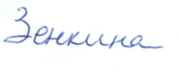 Зенкина